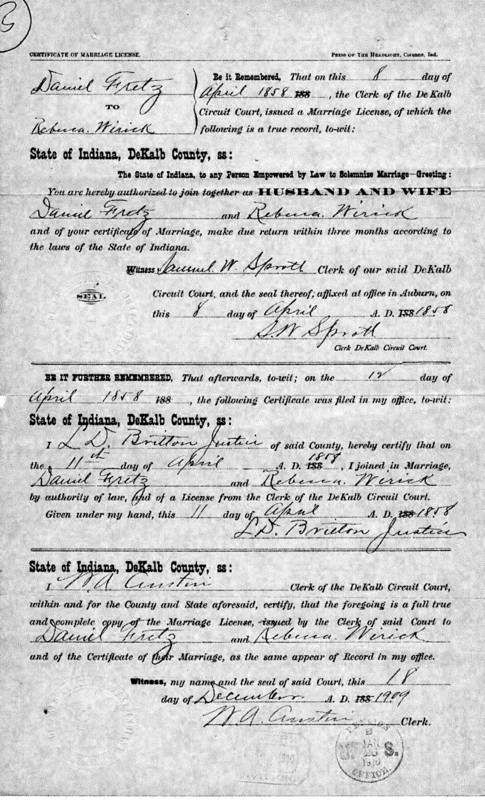 CERTIFICATE OF MARRIAGE LICENSE. PRESS OF THE HEADLIGHT, CORUNNA, IND.
Daniel Fretz
TO
Rebecca Wirick
Be it Remembered, That on this 8 day of
April 1858 188 , the Clerk of the DeKalb
Circuit Court, issued a Marriage License, of which the
following is a true record, to-wit:
State of Indiana, DeKalb County, ss:
The State of Indiana, to any Person Empowered by Law to Solemnize Marriage—Greeting:
You are hereby authorized to join together as HUSBAND AND WIFE
Daniel Fretz and Rebecca Wirick
and of your certificate of Marriage, make due return within three months according to
the laws of the State of Indiana.
Witness Samuel W. Sprott Clerk of our said DeKalb
SEAL
Circuit Court, and the seal thereof, affixed at office in Auburn, on
this 8 day of April A. D. 188 1858
S. W. Sprott
Clerk DeKalb Circuit Court.
BE IT FURTHER REMEMBERED, That afterwards, to-wit; on the 12 day of
April 1858 188 , the following Certificate was filed in my office, to-wit:
State of Indiana, DeKalb County, ss:
I L. D. Britton Justice of said County, hereby certify that on
the 11st day of April A. D. 188 1858 , I joined in Marriage,
Daniel Fretz and Rebecca Wirick
by authority of law, and of a License from the Clerk of the DeKalb Circuit Court.
Given under my hand, this 11 day of April A. D. 188 1858
L. D. Britton Justice
State of Indiana, DeKalb County, ss:
I W. A. Austin Clerk of the DeKalb Circuit Court,
within and for the County and State aforesaid, certify, that the foregoing is a full true
and complete copy of the Marriage License, issued by the Clerk of said Court to
Daniel Fretz and Rebecca Wirick
and of the Certificate of their Marriage, as the same appear of Record in my office.
Witness, my name and the seal of said Court, this 18
day of December A. D. 188 1909
W. A. Austin Clerk.